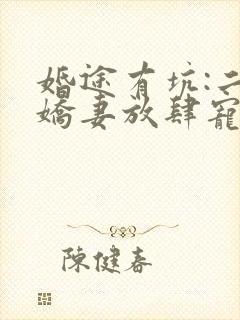 婚途有坑:二
嬌妻放肆寵
陳健春